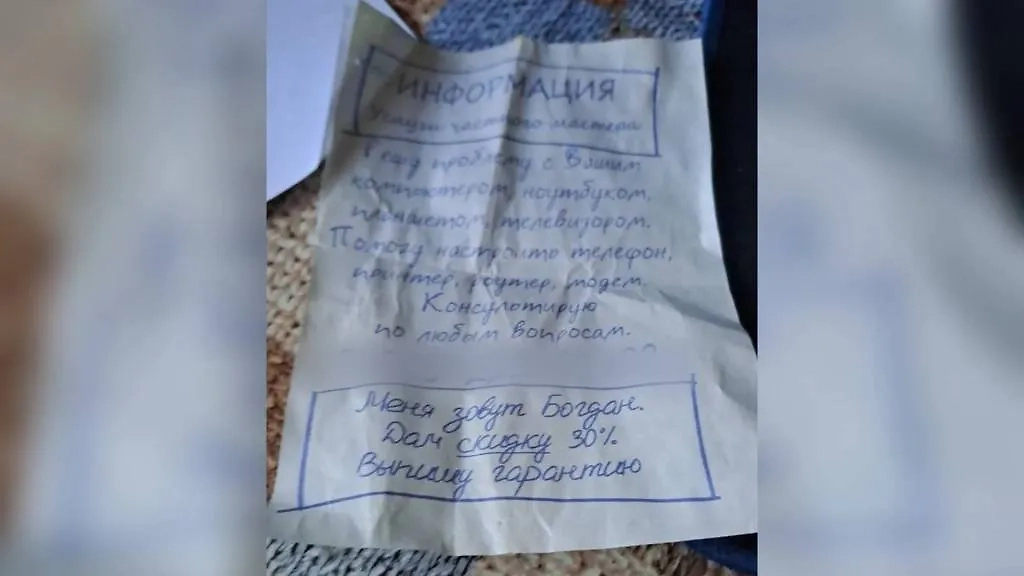 ИНФОРМАЦИЯ
Услуги частного мастера
Решу проблему с Вашим
компьютером, ноутбуком,
планшетом, телевизором.
Помогу настроить телефон,
принтер, роутер, модем.
Консультирую
по любым вопросам.
Меня зовут Богдан.
Дам скидку 30%
Выпишу гарантию